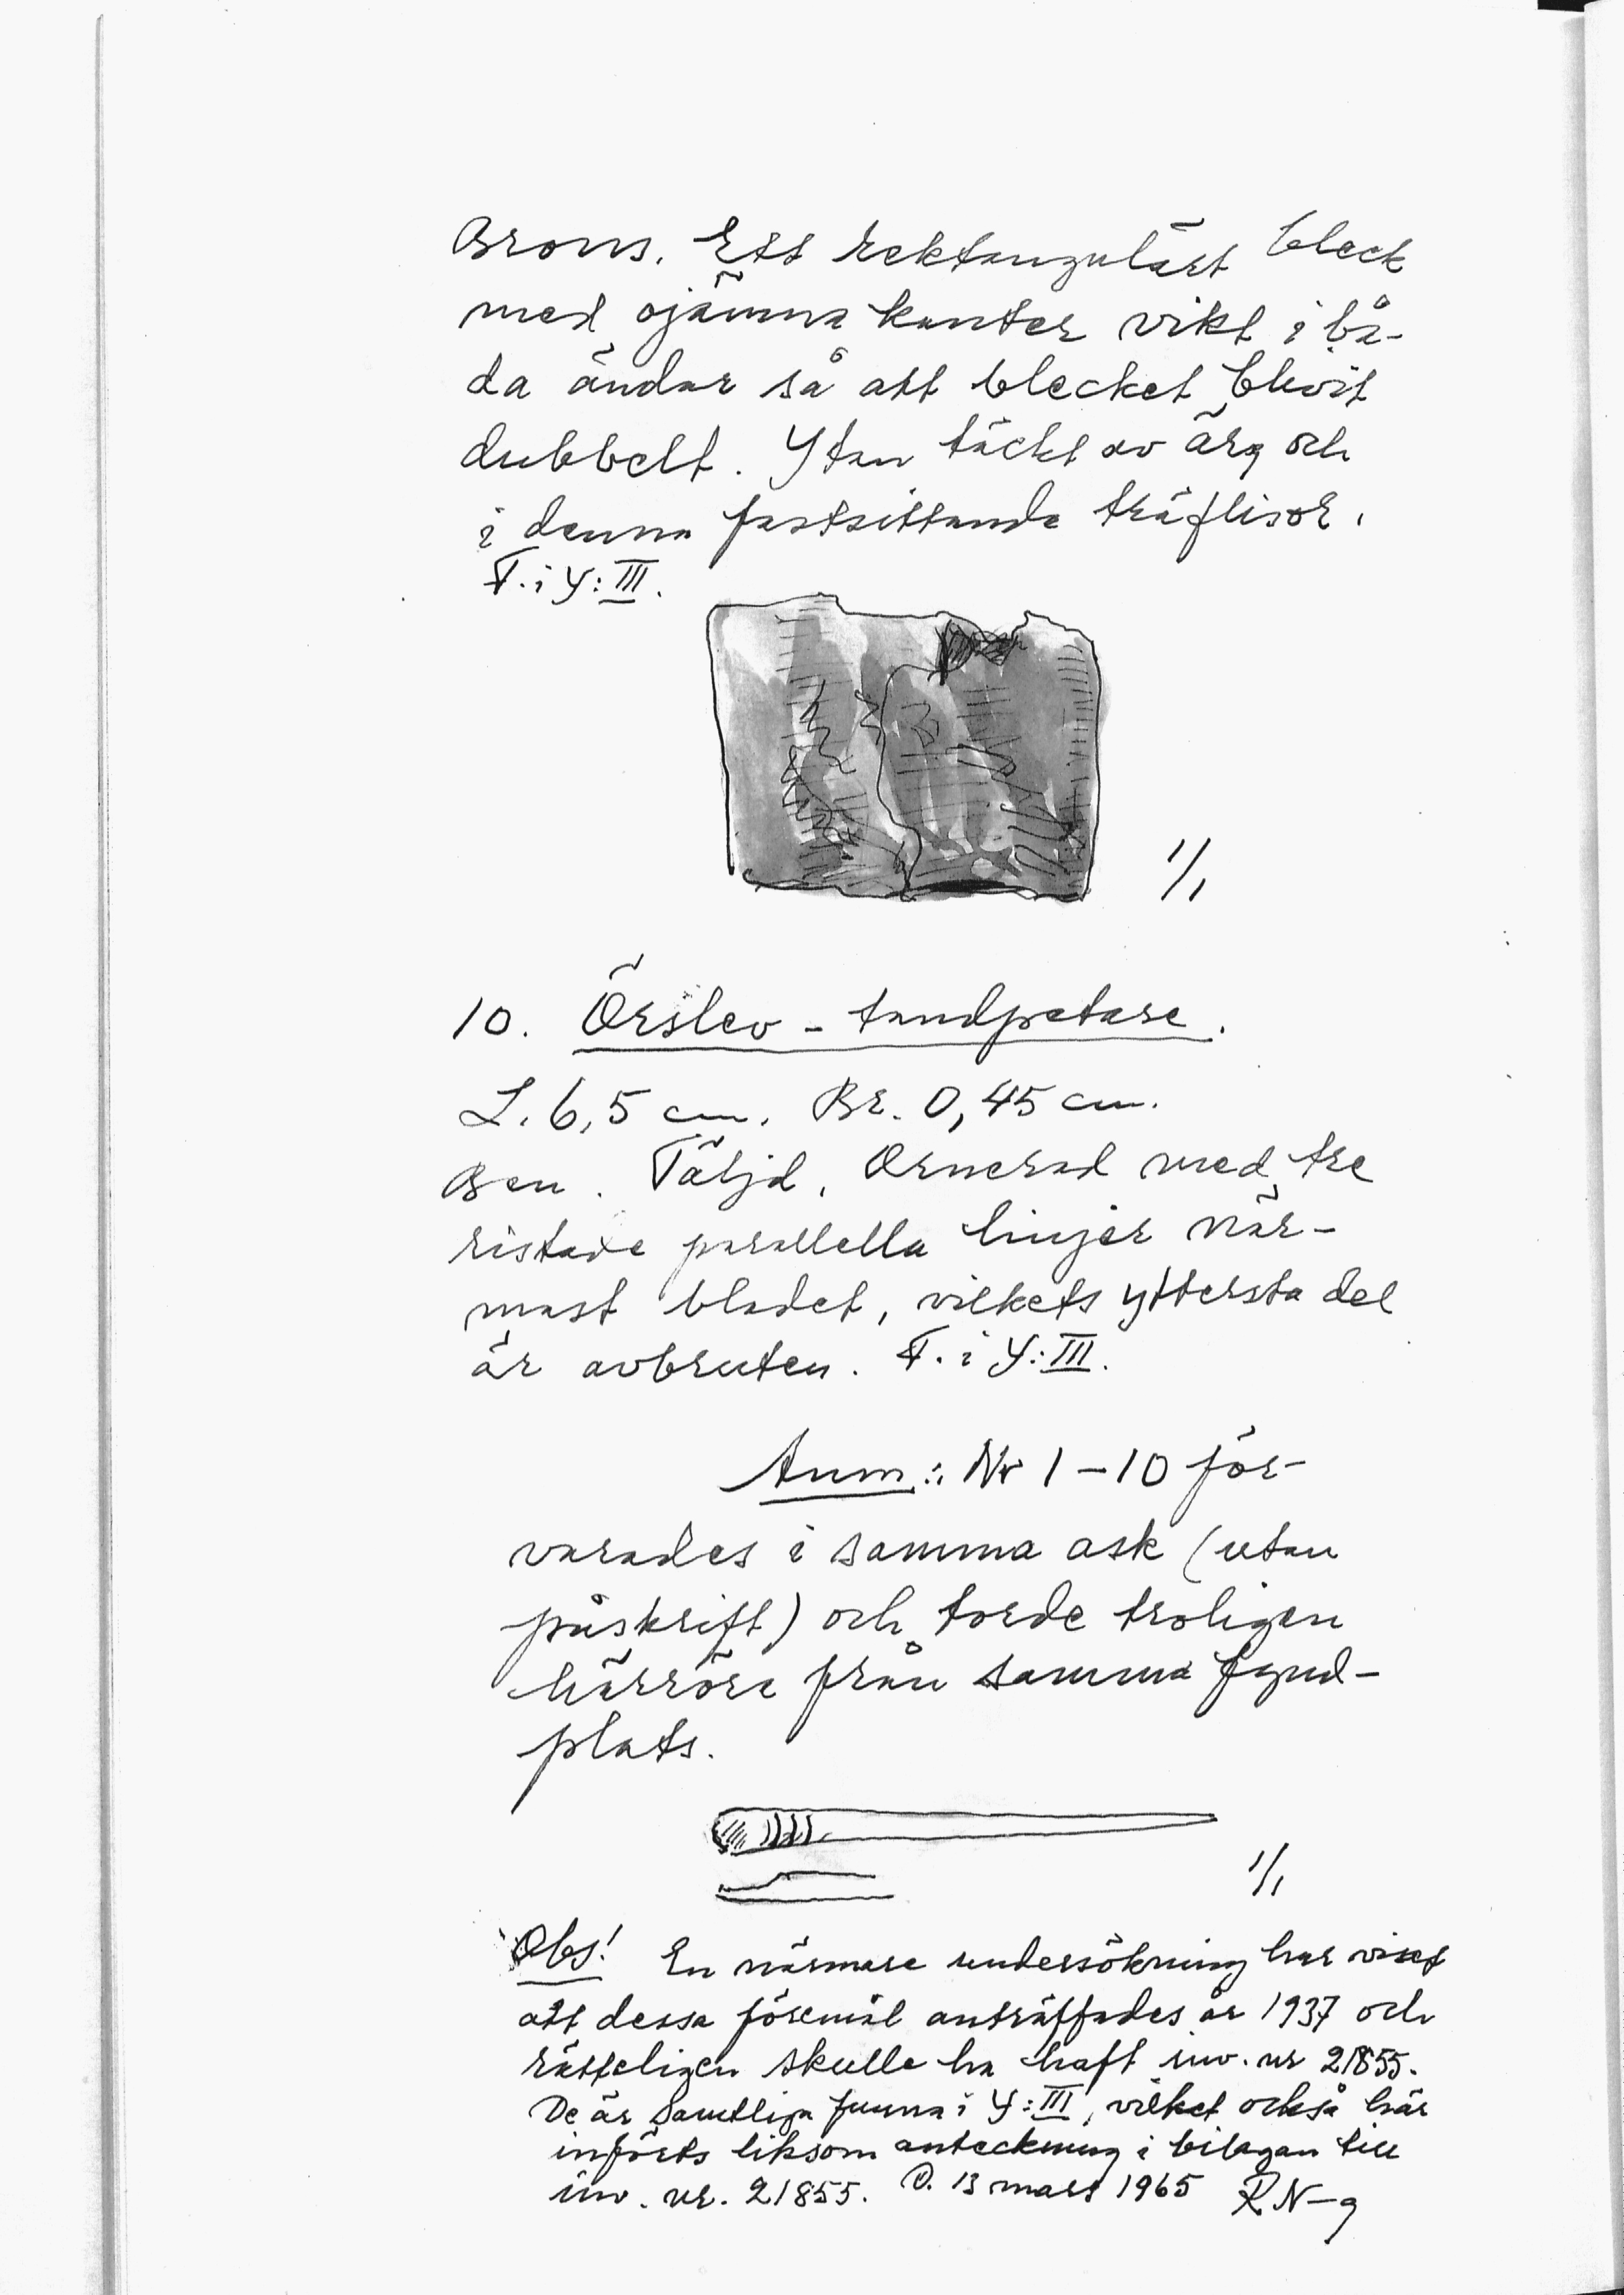 Brons. Ett rektangulärt bleck
med ojämna kanter vikt i bå-
da ändar så att blecket blivit
dubbelt. Ytan täckt av ärg och
i denna fastsittande träflisor.
F. i Y: III.
1/1
10. Örslev - tandpetare.
L. 6,5 cm. Br. 0,45 cm.
Ben. Täljd. Ornerad med tre
ristade parallella linjer när-
mast bladet, vilkets yttersta del
är avbruten. F. i Y: III.
Anm.: Nr 1-10 för-
varades i samma ask (utan
påskrift) och torde troligen
härröra från samma fynd-
plats.
1/1
Obs! En närmare undersökning har visat
att dessa föremål anträffades år 1937 och
rätteligen skulle ha haft inv. nr 21855.
De är samtliga funna i Y: III, vilket också här
införts liksom anteckning i bilagan till
inv. nr. 21855. D. 13 mars 1965 RN-g